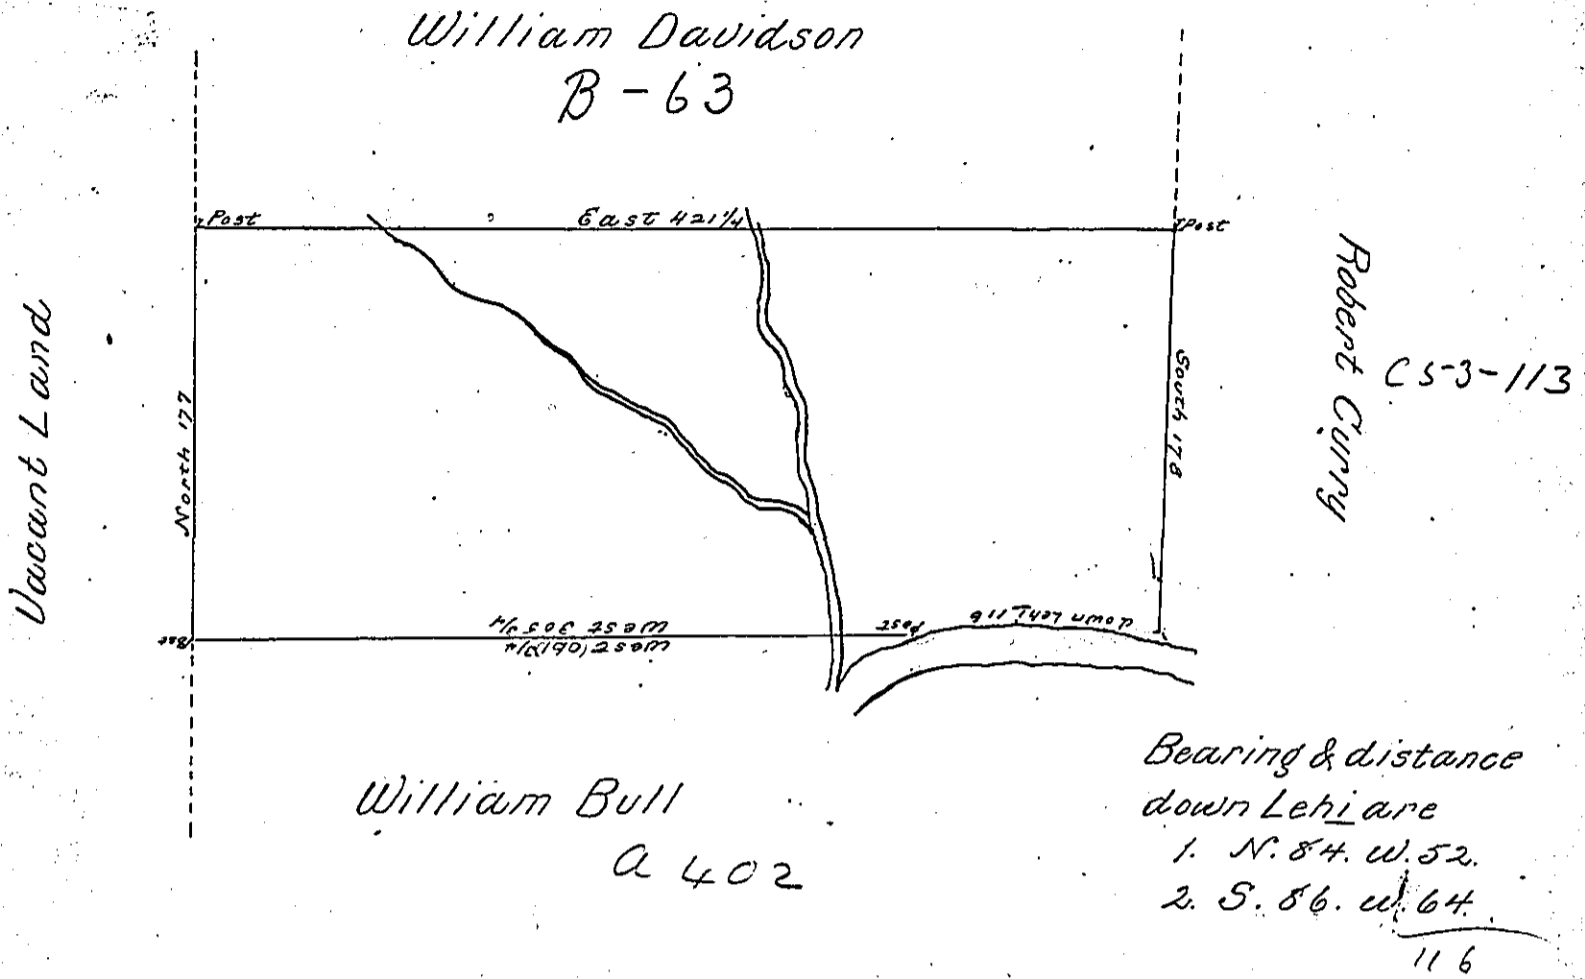 William Davidson
B-63
Post
East 421¼
Post
Vacant Land
North 177
South 178
Robert Curry
C53-113
West 305¼
Post
down Lehi 116
William Bull
A 402
Bearing & distance
down Lehi are
1. N. 84. W. 52.
2. S. 86. W. 64.
116